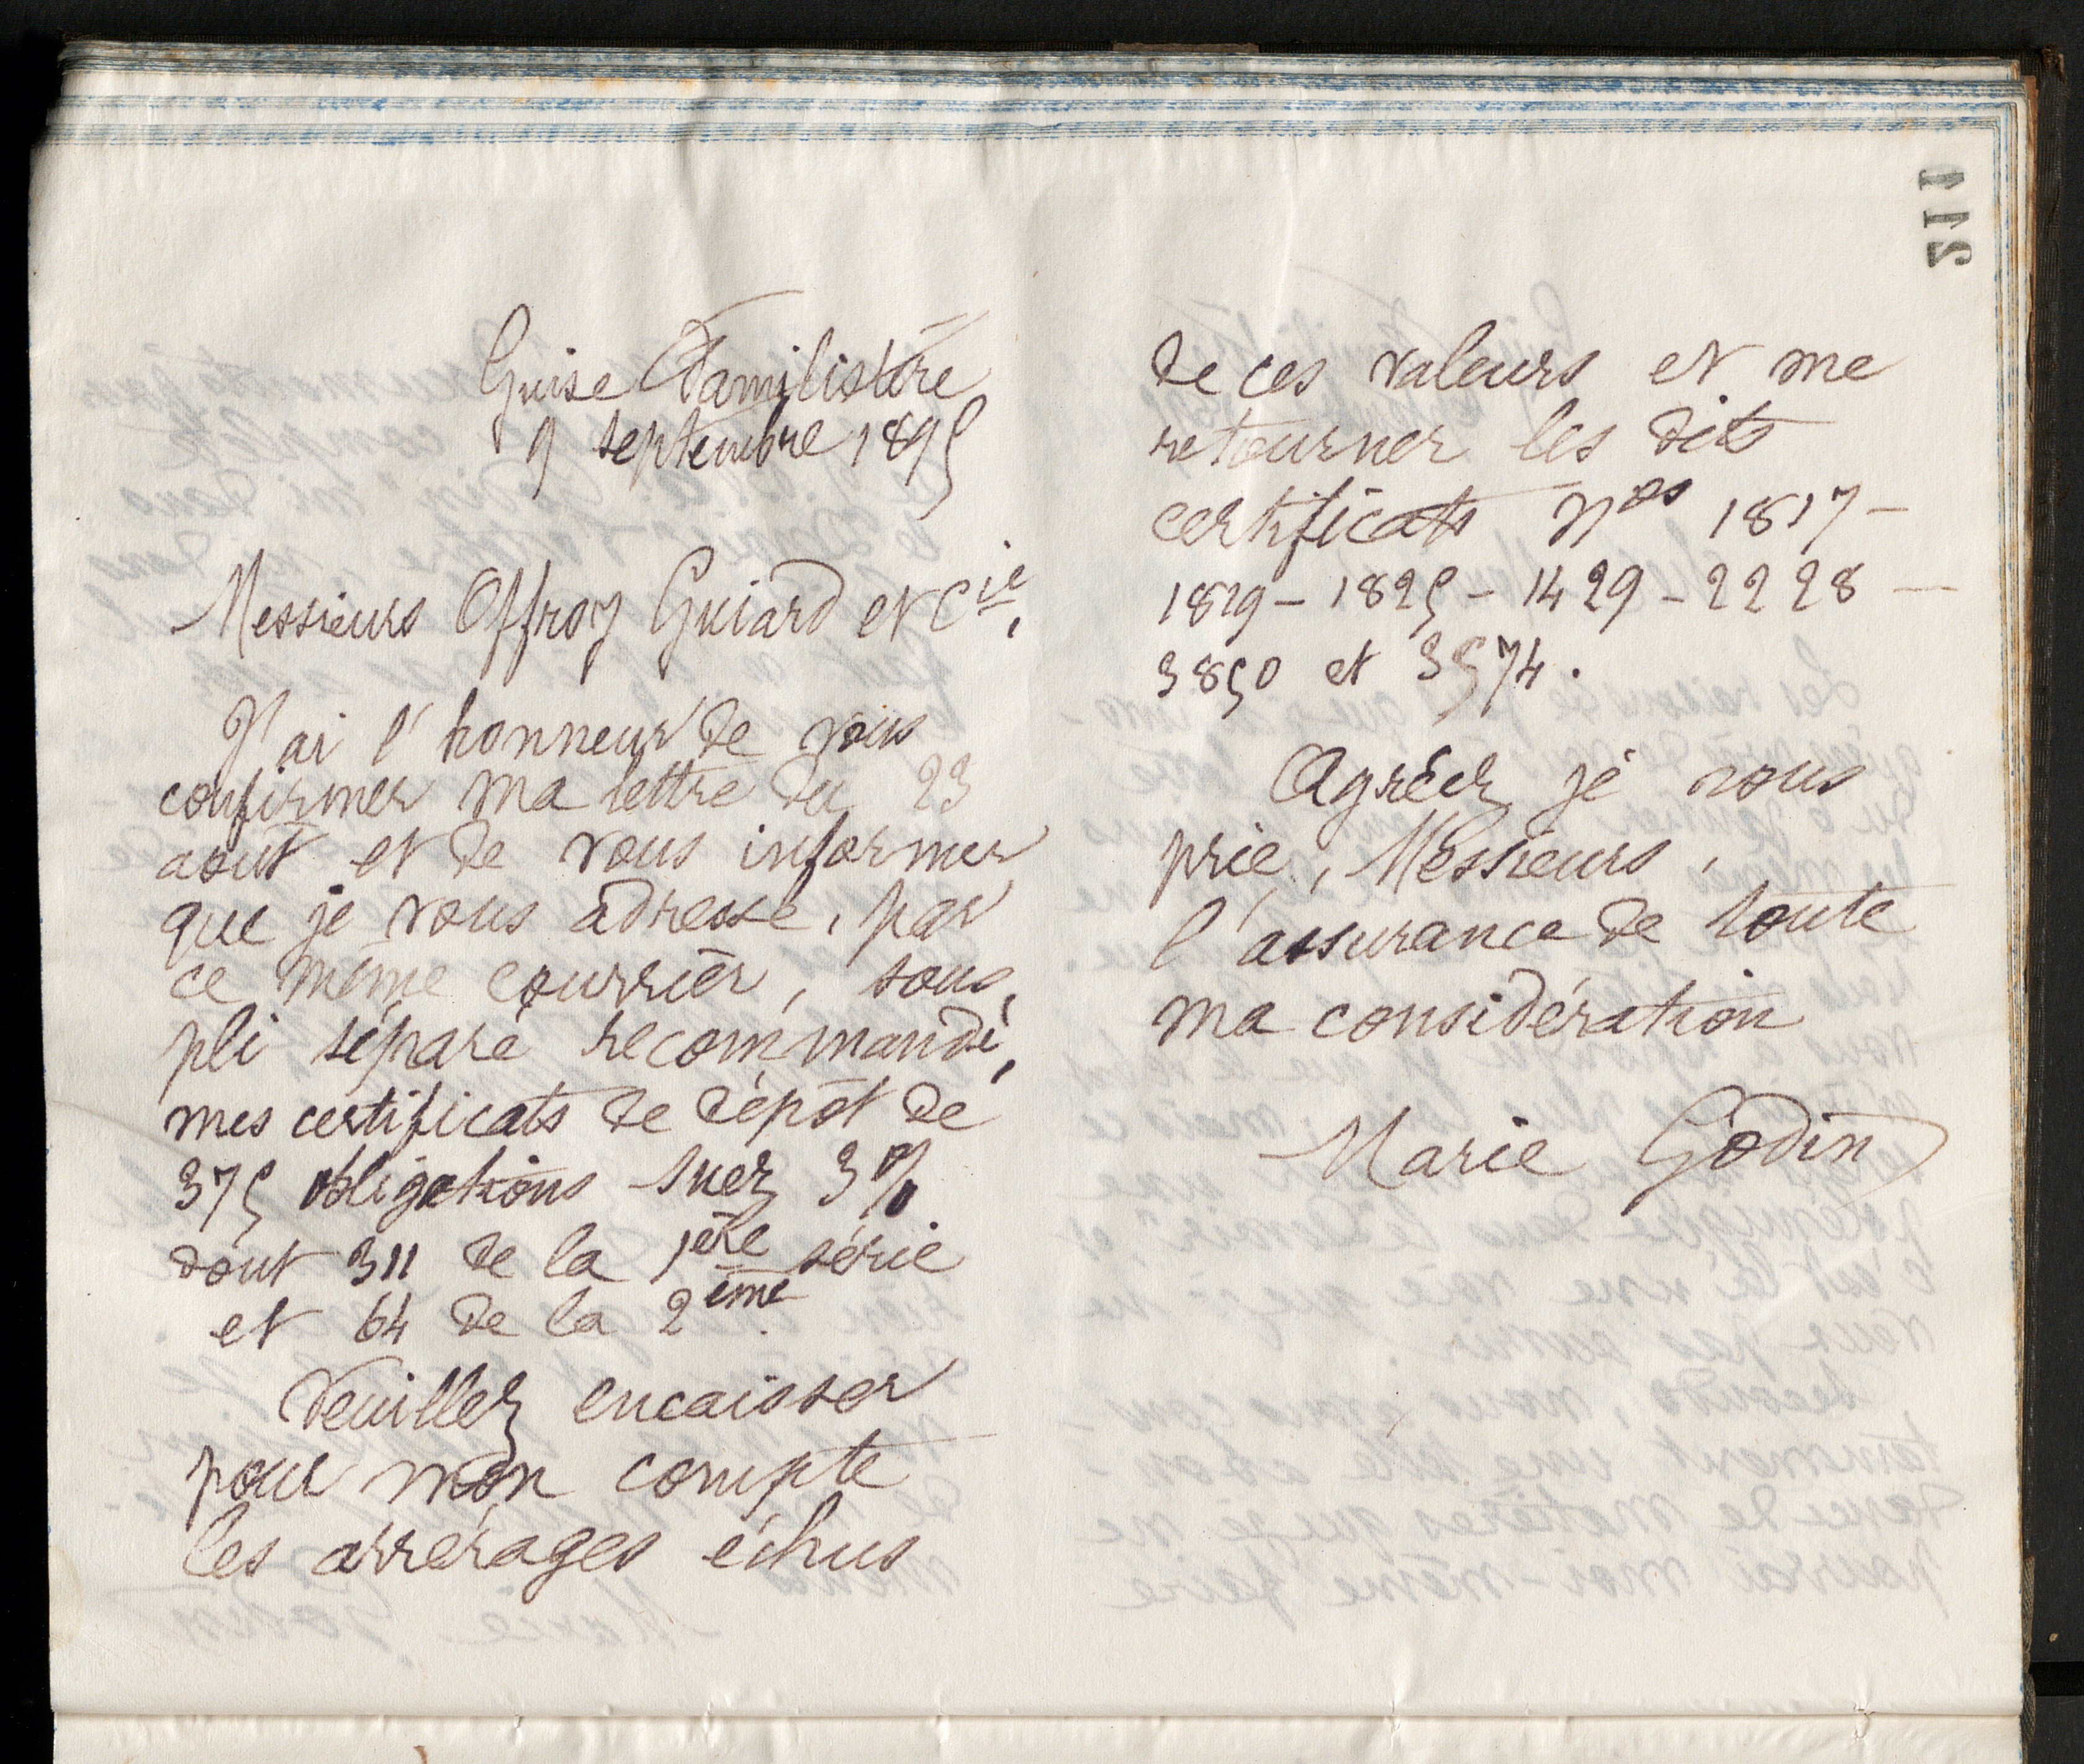 Guise Familistère
9 septembre 1895
Messieurs Offroy Guiard et Cie,
J'ai l'honneur de vous
confirmer ma lettre du 23
août et de vous informer
que je vous adresse, par
ce même courrier, sous
pli séparé recommandé,
mes certificats de dépôt de
375 obligations Suez 3%
dont 311 de la 1ère série
et 64 de la 2ème.
Veuillez encaisser
pour mon compte
les arrérages échus
de ces valeurs et me
retourner les dits
certificats Nos 1817 -
1819 - 1825 - 1429 - 2228 -
3850 et 3574.
Agréez, je vous
prie, Messieurs,
l'assurance de toute
ma considération
Marie Godin